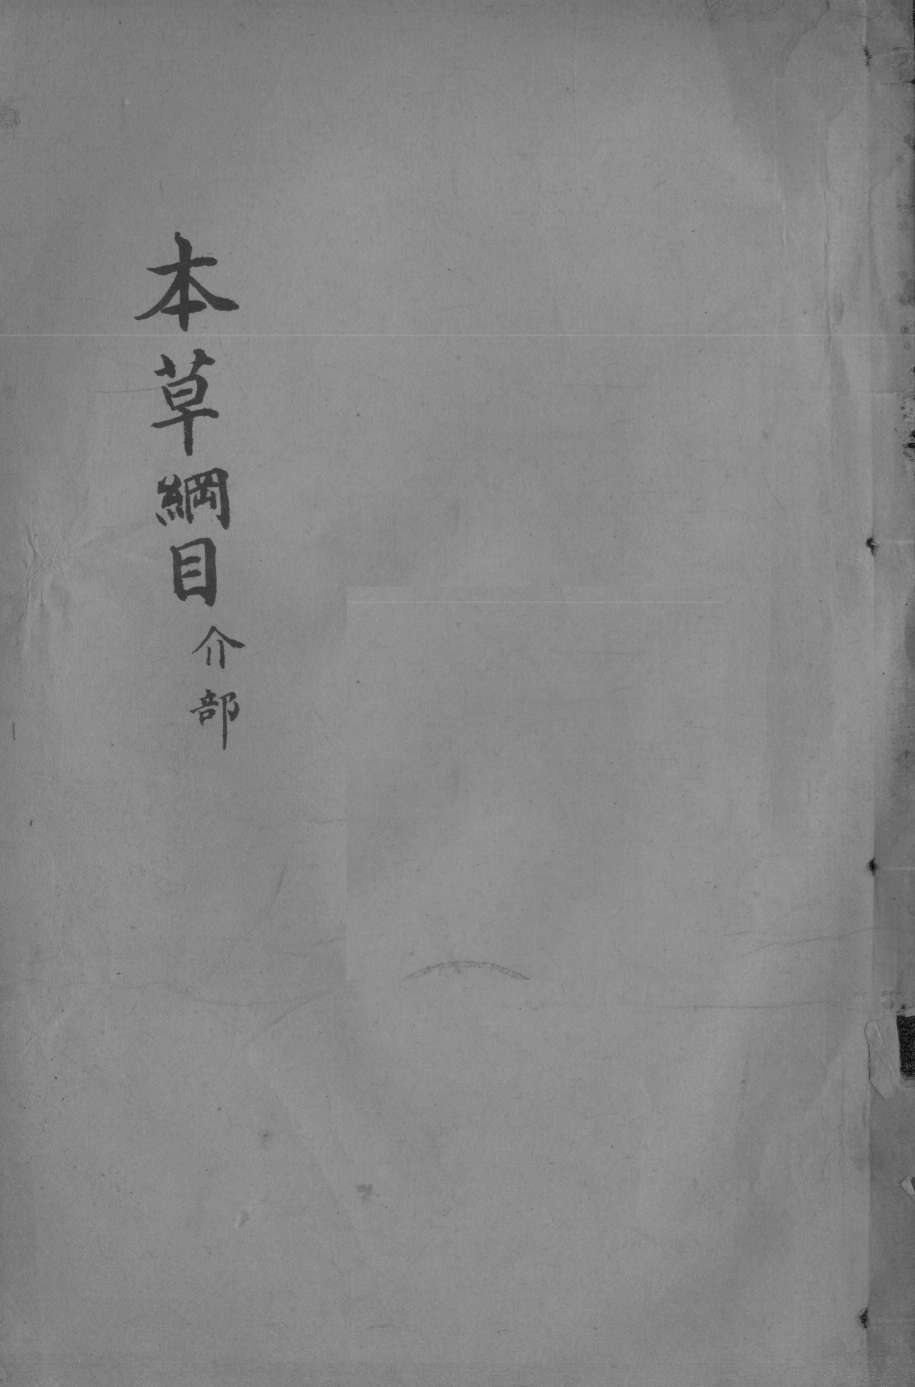 本草綱目介部